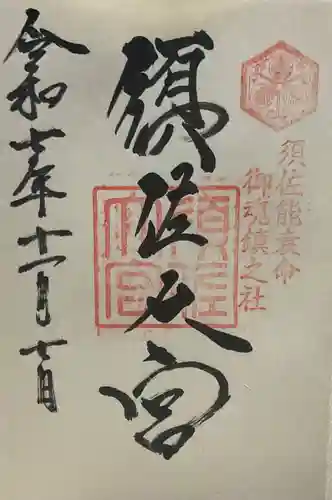 須佐能袁命
御魂鎮之社
須佐大宮
須佐大宮
令和七年十一月七日